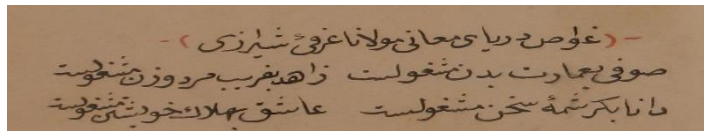 (غواص دریای معانی مولانا عرفی شیرازی)
صوفی بعمارت بدن مشغولست زاهد بفریب مرد و زن مشغولست
دانا بکرشمهٔ سخن مشغولست عاشق بهلاک خویشتن مشغولست